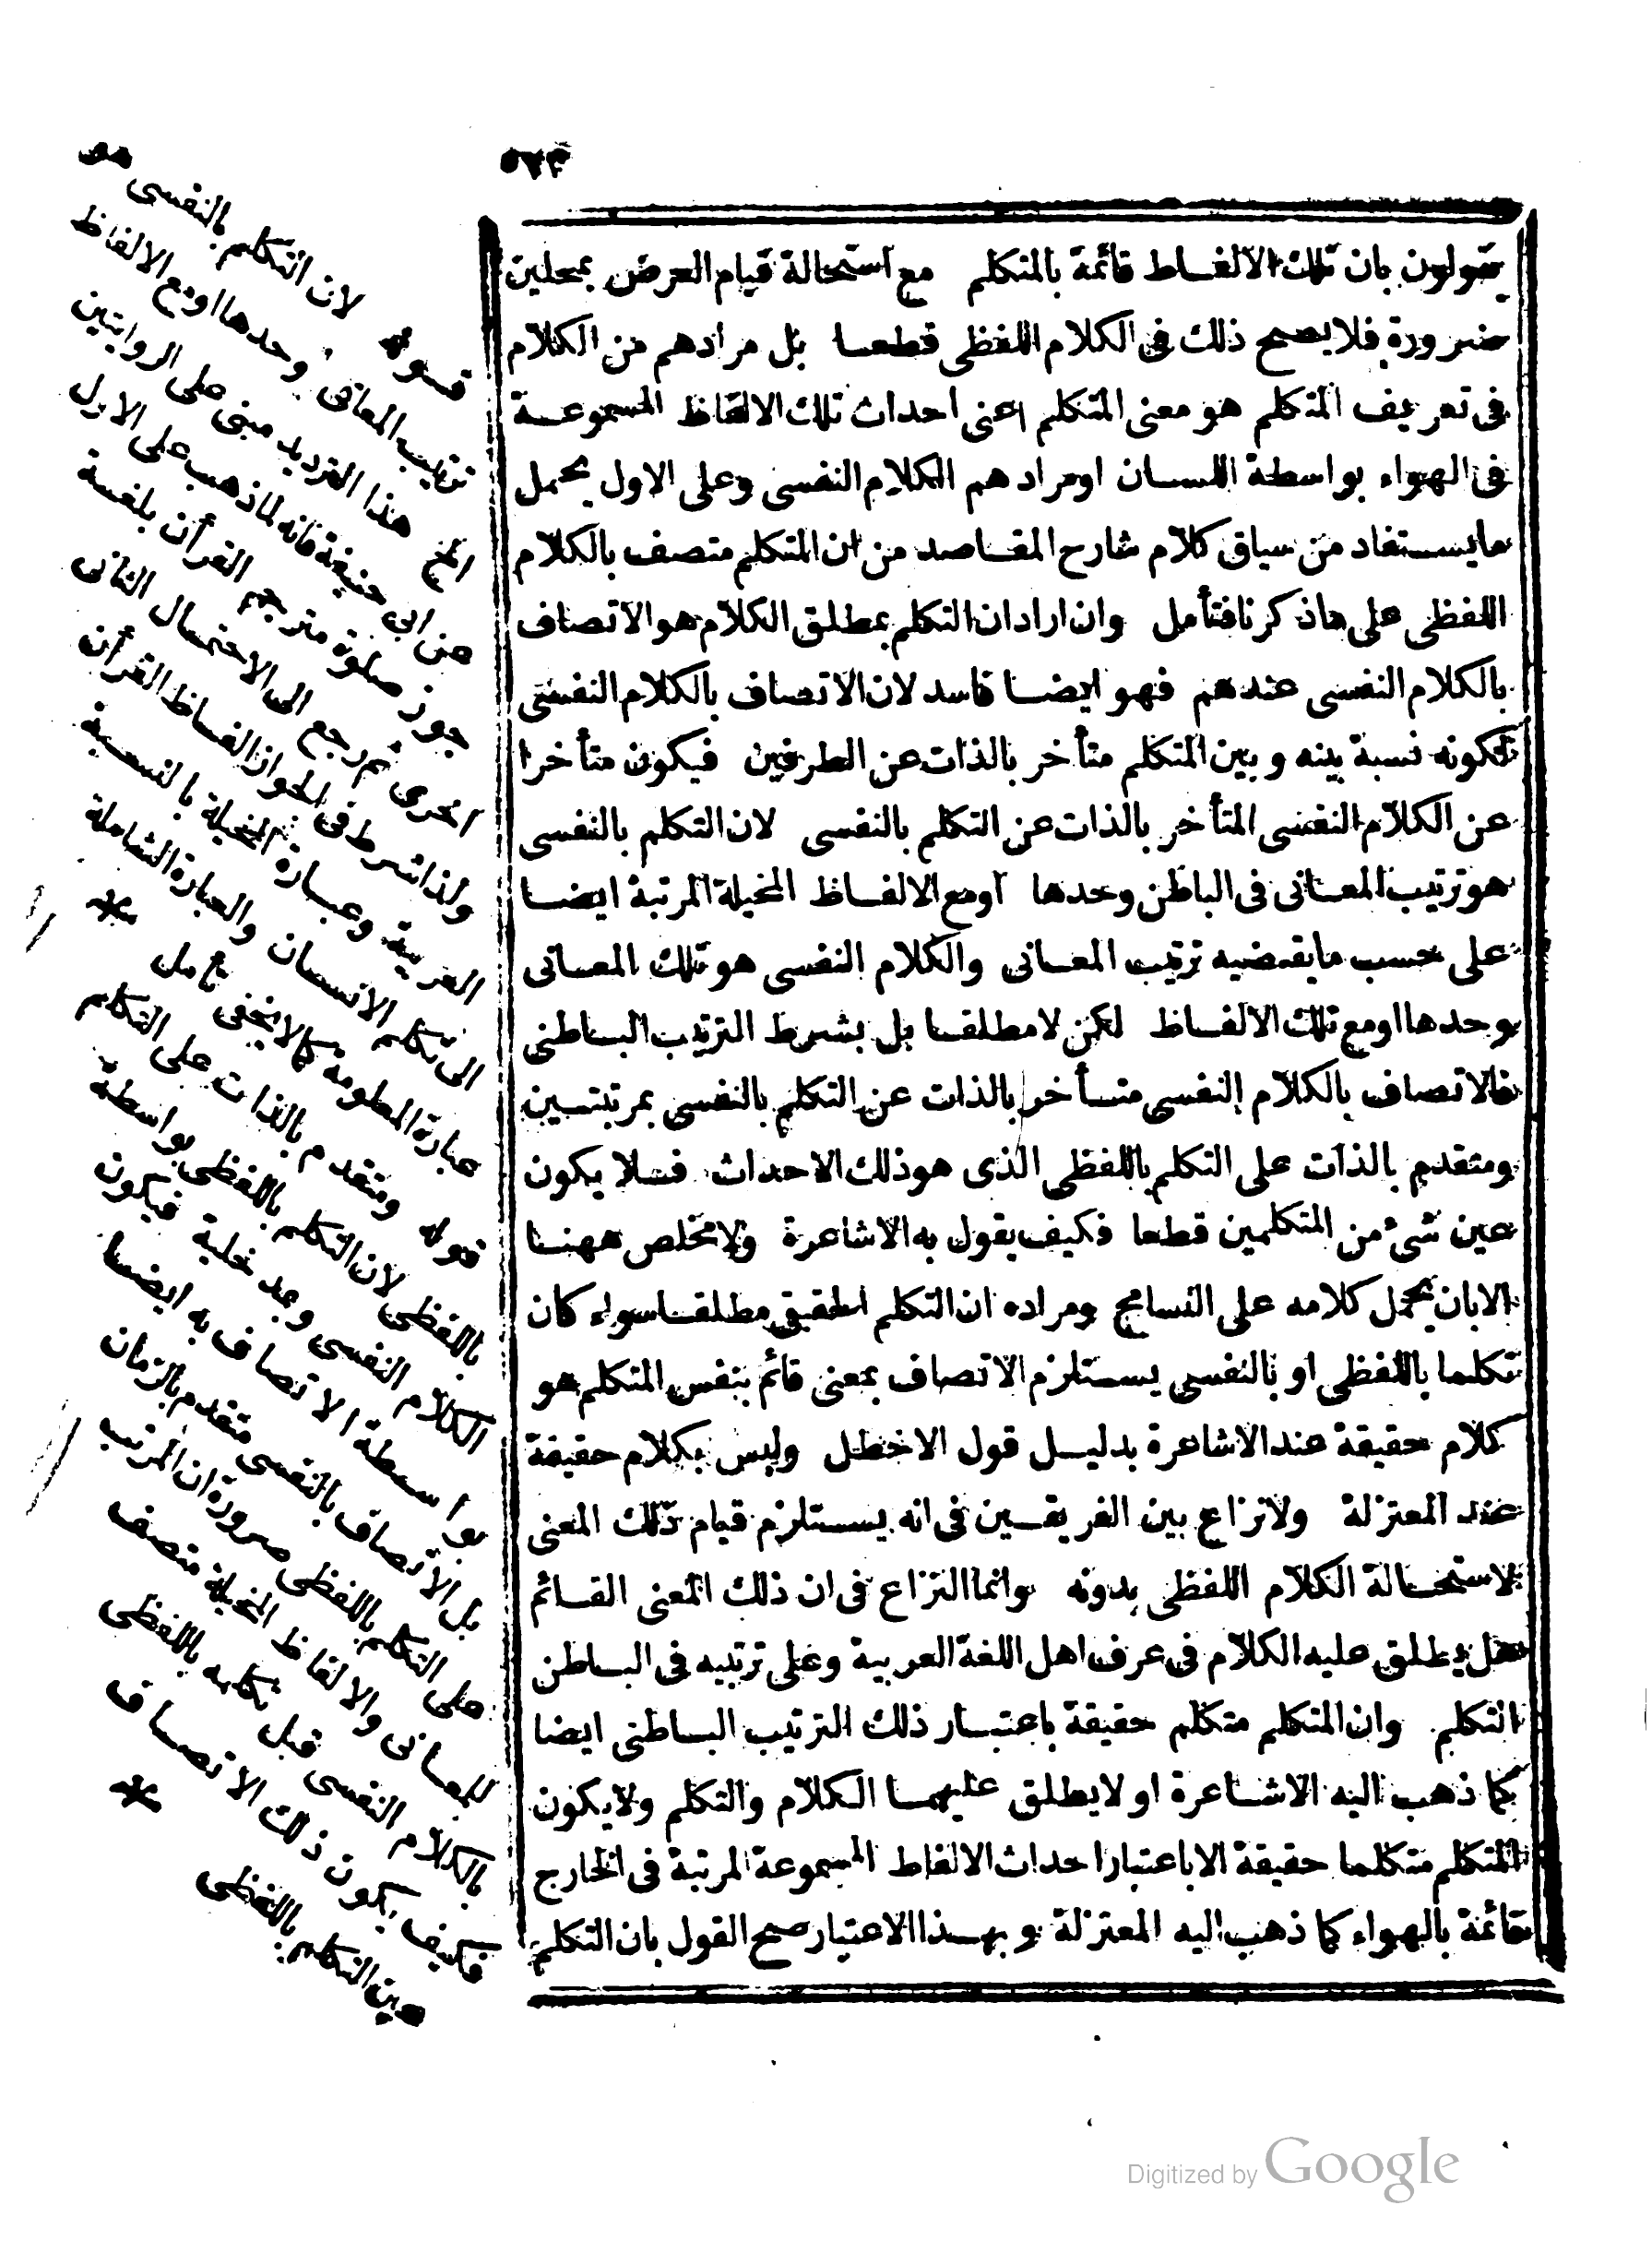 يقولون بان تلك الالفاظ قائمة بالمتكلم مع استحالة قيام العرض بمحلين
ضرورة فلا يصح ذلك فى الكلام اللفظى قطعا بل مرادهم من الكلام
فى تعريف المتكلم هو معنى المتكلم اعنى احداث تلك الالفاظ المسموعة
فى الهواء بواسطة اللسان اومرادهم الكلام النفسى وعلى الاول يحمل
مايستفاد من سياق كلام شارح المقاصد من ان المتكلم متصف بالكلام
اللفظى على ماذكرنا فتأمل وان اراد ان التكلم بمطلق الكلام هو الاتصاف
بالكلام النفسى عندهم فهو ايضا فاسد لان الاتصاف بالكلام النفسى
لكونه نسبة بينه وبين المتكلم متأخر بالذات عن الطرفين فيكون متأخرا
عن الكلام النفسى المتأخر بالذات عن التكلم بالنفسى لان التكلم بالنفسى
هو ترتيب المعانى فى الباطن وحدها اومع الالفاظ المخيلة المرتبة ايضا
على حسب مايقتضيه ترتيب المعانى والكلام النفسى هو تلك المعانى
وحدها اومع تلك الالفاظ لكن لامطلقا بل بشرط الترتيب الباطنى
فالاتصاف بالكلام النفسى متأخر بالذات عن التكلم بالنفسى بمرتبتين
ومتقدم بالذات على التكلم باللفظى الذى هو ذلك الاحداث فلا يكون
عين شئ من المتكلمين قطعا فكيف يقول به الاشاعرة ولا مخلص ههنا
الا بان يحمل كلامه على التسامح ومراده ان التكلم الحقيقى مطلقا سواء كان
تكلما باللفظى او بالنفسى يستلزم الاتصاف بمعنى قائم بنفس المتكلم هو
كلام حقيقة عند الاشاعرة بدليل قول الاخطل وليس بكلام حقيقة
عند المعتزلة ولا نزاع بين الفريقين فى انه يستلزم قيام ذلك المعنى
لاستحالة الكلام اللفظى بدونه وانما النزاع فى ان ذلك المعنى القائم
هل يطلق عليه الكلام فى عرف اهل اللغة العربية وعلى ترتيبه فى الباطن
التكلم وان المتكلم متكلم حقيقة باعتبار ذلك الترتيب الباطنى ايضا
كما ذهب اليه الاشاعرة او لا يطلق عليهما الكلام والتكلم ولا يكون
المتكلم متكلما حقيقة الا باعتبار احداث الالفاظ المسموعة المرتبة فى الخارج
قائمة بالهواء كما ذهب اليه المعتزلة وبهذا الاعتبار صح القول بان التكلم
قوله لان التكلم بالنفسى هو
ترتيب المعانى وحدها اومع الالفاظ
الخ هذا الترديد مبنى على الروايتين
عن ابى حنيفة فانه لما ذهب على الاول
جوز صلوة مترجم القرأن بلغة
اخرى ثم رجع الى الاحتمال الثانى
ولذا شرط فى الجواز الفاظ القرأن
العربية وعبارة المخيلة بالنسبة
الى تكلم الانسان والعبارة الشاملة
عبارة المعلومة كما لا يخفى تأمل *
قوله ومتقدم بالذات على التكلم
باللفظى لان التكلم باللفظى بواسطة
الكلام النفسى وعد خلية فيكون
بواسطة الاتصاف به ايضا
بل الاتصاف بالنفسى متقدم بالزمان
على التكلم باللفظى ضرورة ان المرتب
للمعانى والالفاظ المخيلة متصف
بالكلام النفسى قبل تكلمه باللفظى
فكيف يكون ذلك الاتصاف *
عين التكلم باللفظى
Digitized by Google